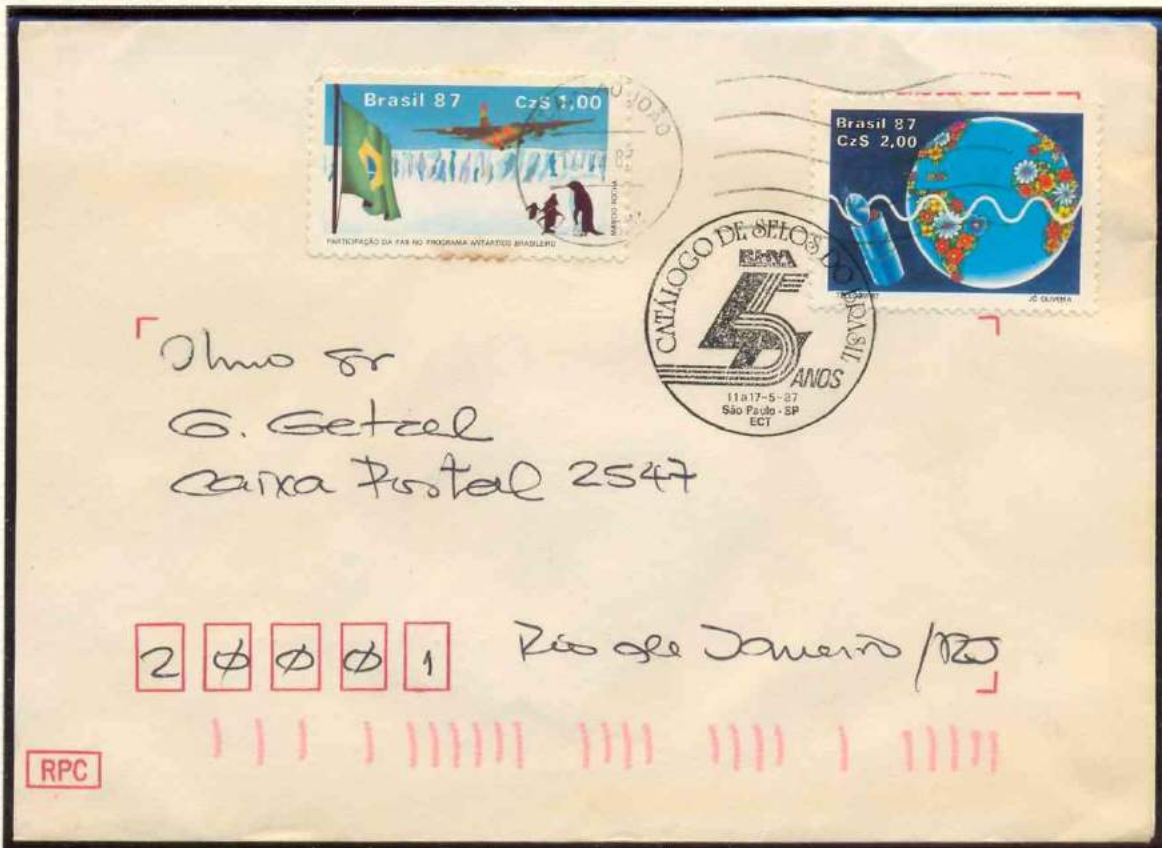 Brasil 87 Cz$ 1,00
MARCIO ROCHA
PARTICIPAÇÃO DA FAB NO PROGRAMA ANTÁRTICO BRASILEIRO
JOÃO
Brasil 87
Cz$ 2,00
JÔ OLIVEIRA
CATÁLOGO DE SELOS DO BRASIL
RHM
45
ANOS
11 a 17-5-87
São Paulo - SP
ECT
Ilmo Sr
G. Getzel
Caixa Postal 2547
20001 Rio de Janeiro/RJ
RPC